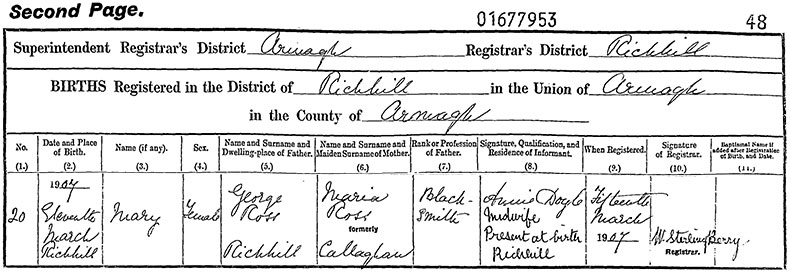 Second Page.
01677953
48
Superintendent Registrar's District Armagh Registrar's District Richhill
BIRTHS Registered in the District of Richhill in the Union of Armagh
in the County of Armagh
No. Date and Place of Birth. Name (if any). Sex. Name and Surname and Dwelling-place of Father. Name and Surname and Maiden Surname of Mother. Rank or Profession of Father. Signature, Qualification, and Residence of Informant. When Registered. Signature of Registrar. Baptismal Name if added after Registration of Birth, and Date.
(1.) (2.) (3.) (4.) (5.) (6.) (7.) (8.) (9.) (10.) (11.)
20
1907
Eleventh
March
Richhill
Mary
Female
George
Ross
Richhill
Maria
Ross
formerly
Callaghan
Black-
smith
Annie Doyle
Midwife
Present at birth
Richhill
Fifteenth
March
1907
W. Sterling Berry
Registrar.